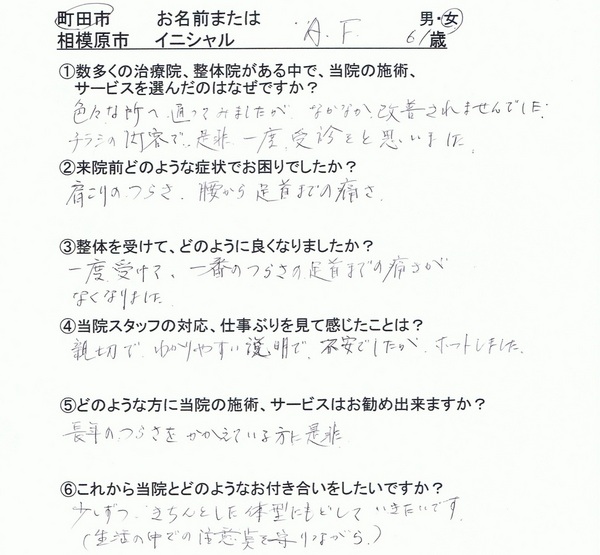 町田市 お名前または 男・女
相模原市 イニシャル A.F. 61歳
①数多くの治療院、整体院がある中で、当院の施術、
サービスを選んだのはなぜですか？
色々な所へ通ってみましたが なかなか改善されませんでした.
チラシの内容で、是非一度、受診をと思いました.
②来院前どのような症状でお困りでしたか？
肩こりのつらさ、腰から足首までの痛さ.
③整体を受けて、どのように良くなりましたか？
一度受けて、一番のつらさの足首までの痛さが
なくなりました.
④当院スタッフの対応、仕事ぶりを見て感じたことは？
親切で、わかりやすい説明で、不安でしたが、ホットしました.
⑤どのような方に当院の施術、サービスはお勧め出来ますか？
長年のつらさをかかえている方に是非
⑥これから当院とどのようなお付き合いをしたいですか？
少しずつ、きちんとした体型にもどしていきたいです.
(生活の中での注意点を守りながら.)